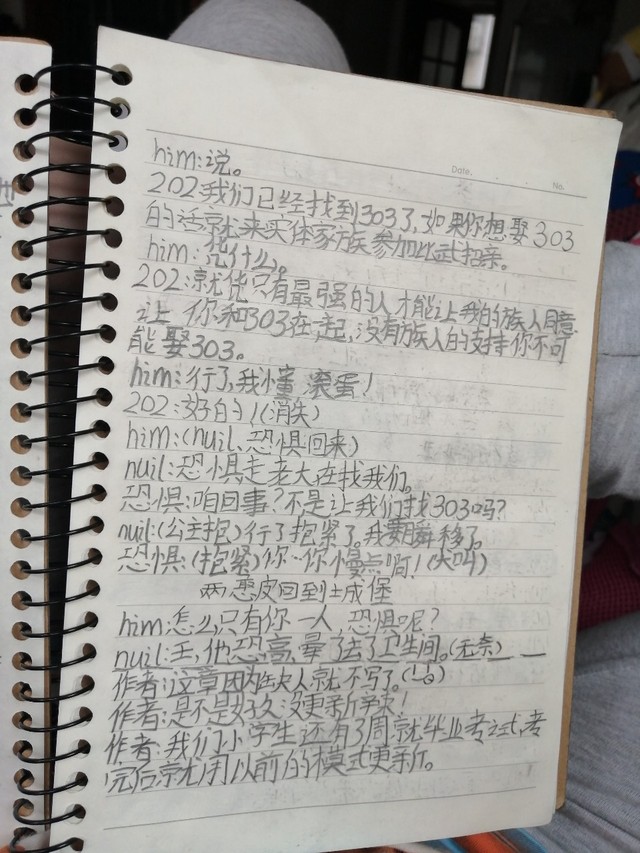 Date.
No.
him:说。
202我们已经找到303了,如果你想娶303
的话就来实体家族参加比武招亲。
him:凭什么。
202:就凭只有最强的人才能让我的族人同意
让 你和303在一起,没有族人的支持你不可
能娶303。
him:行了,我懂 滚蛋!
202:好的!(消失)
him:(null、恐惧回来)
null:恐惧走老大在找我们。
恐惧:咱回事?不是让我们找303吗?
null:(公主抱)行了抱紧了。我要瞬移了。
恐惧:(抱紧)你··你慢点啊!(大叫)
两 恶皮回到土成堡
him:怎么只有你一人 恐惧呢?
null:王,他恐高,晕了去了卫生间。(无奈)
作者:这章因为缺人就不写了。
作者:是不是好久没更新
作者:我们小学生还有3周就毕业考试,考
完后就用以前的模式更新。